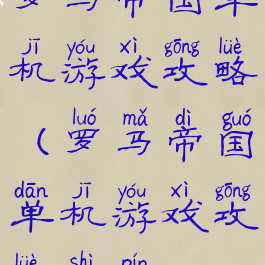 罗马帝国单
jī yóu xì gōng lüè
机游戏攻略
luó mǎ dì guó
（罗马帝国
dān jī yóu xì gōng
单机游戏攻
lüè shì pín